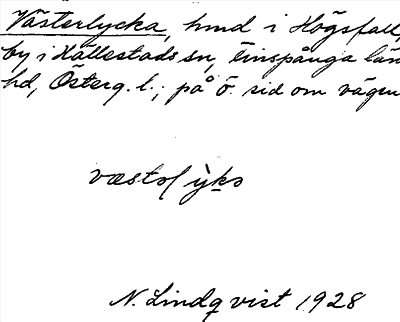 Västerlycka, hmd i Högsfall,
by i Hällestads sn, Finspånga län
hd, Österg. l.; på ö. sid om vägen
N. Lindqvist 1928